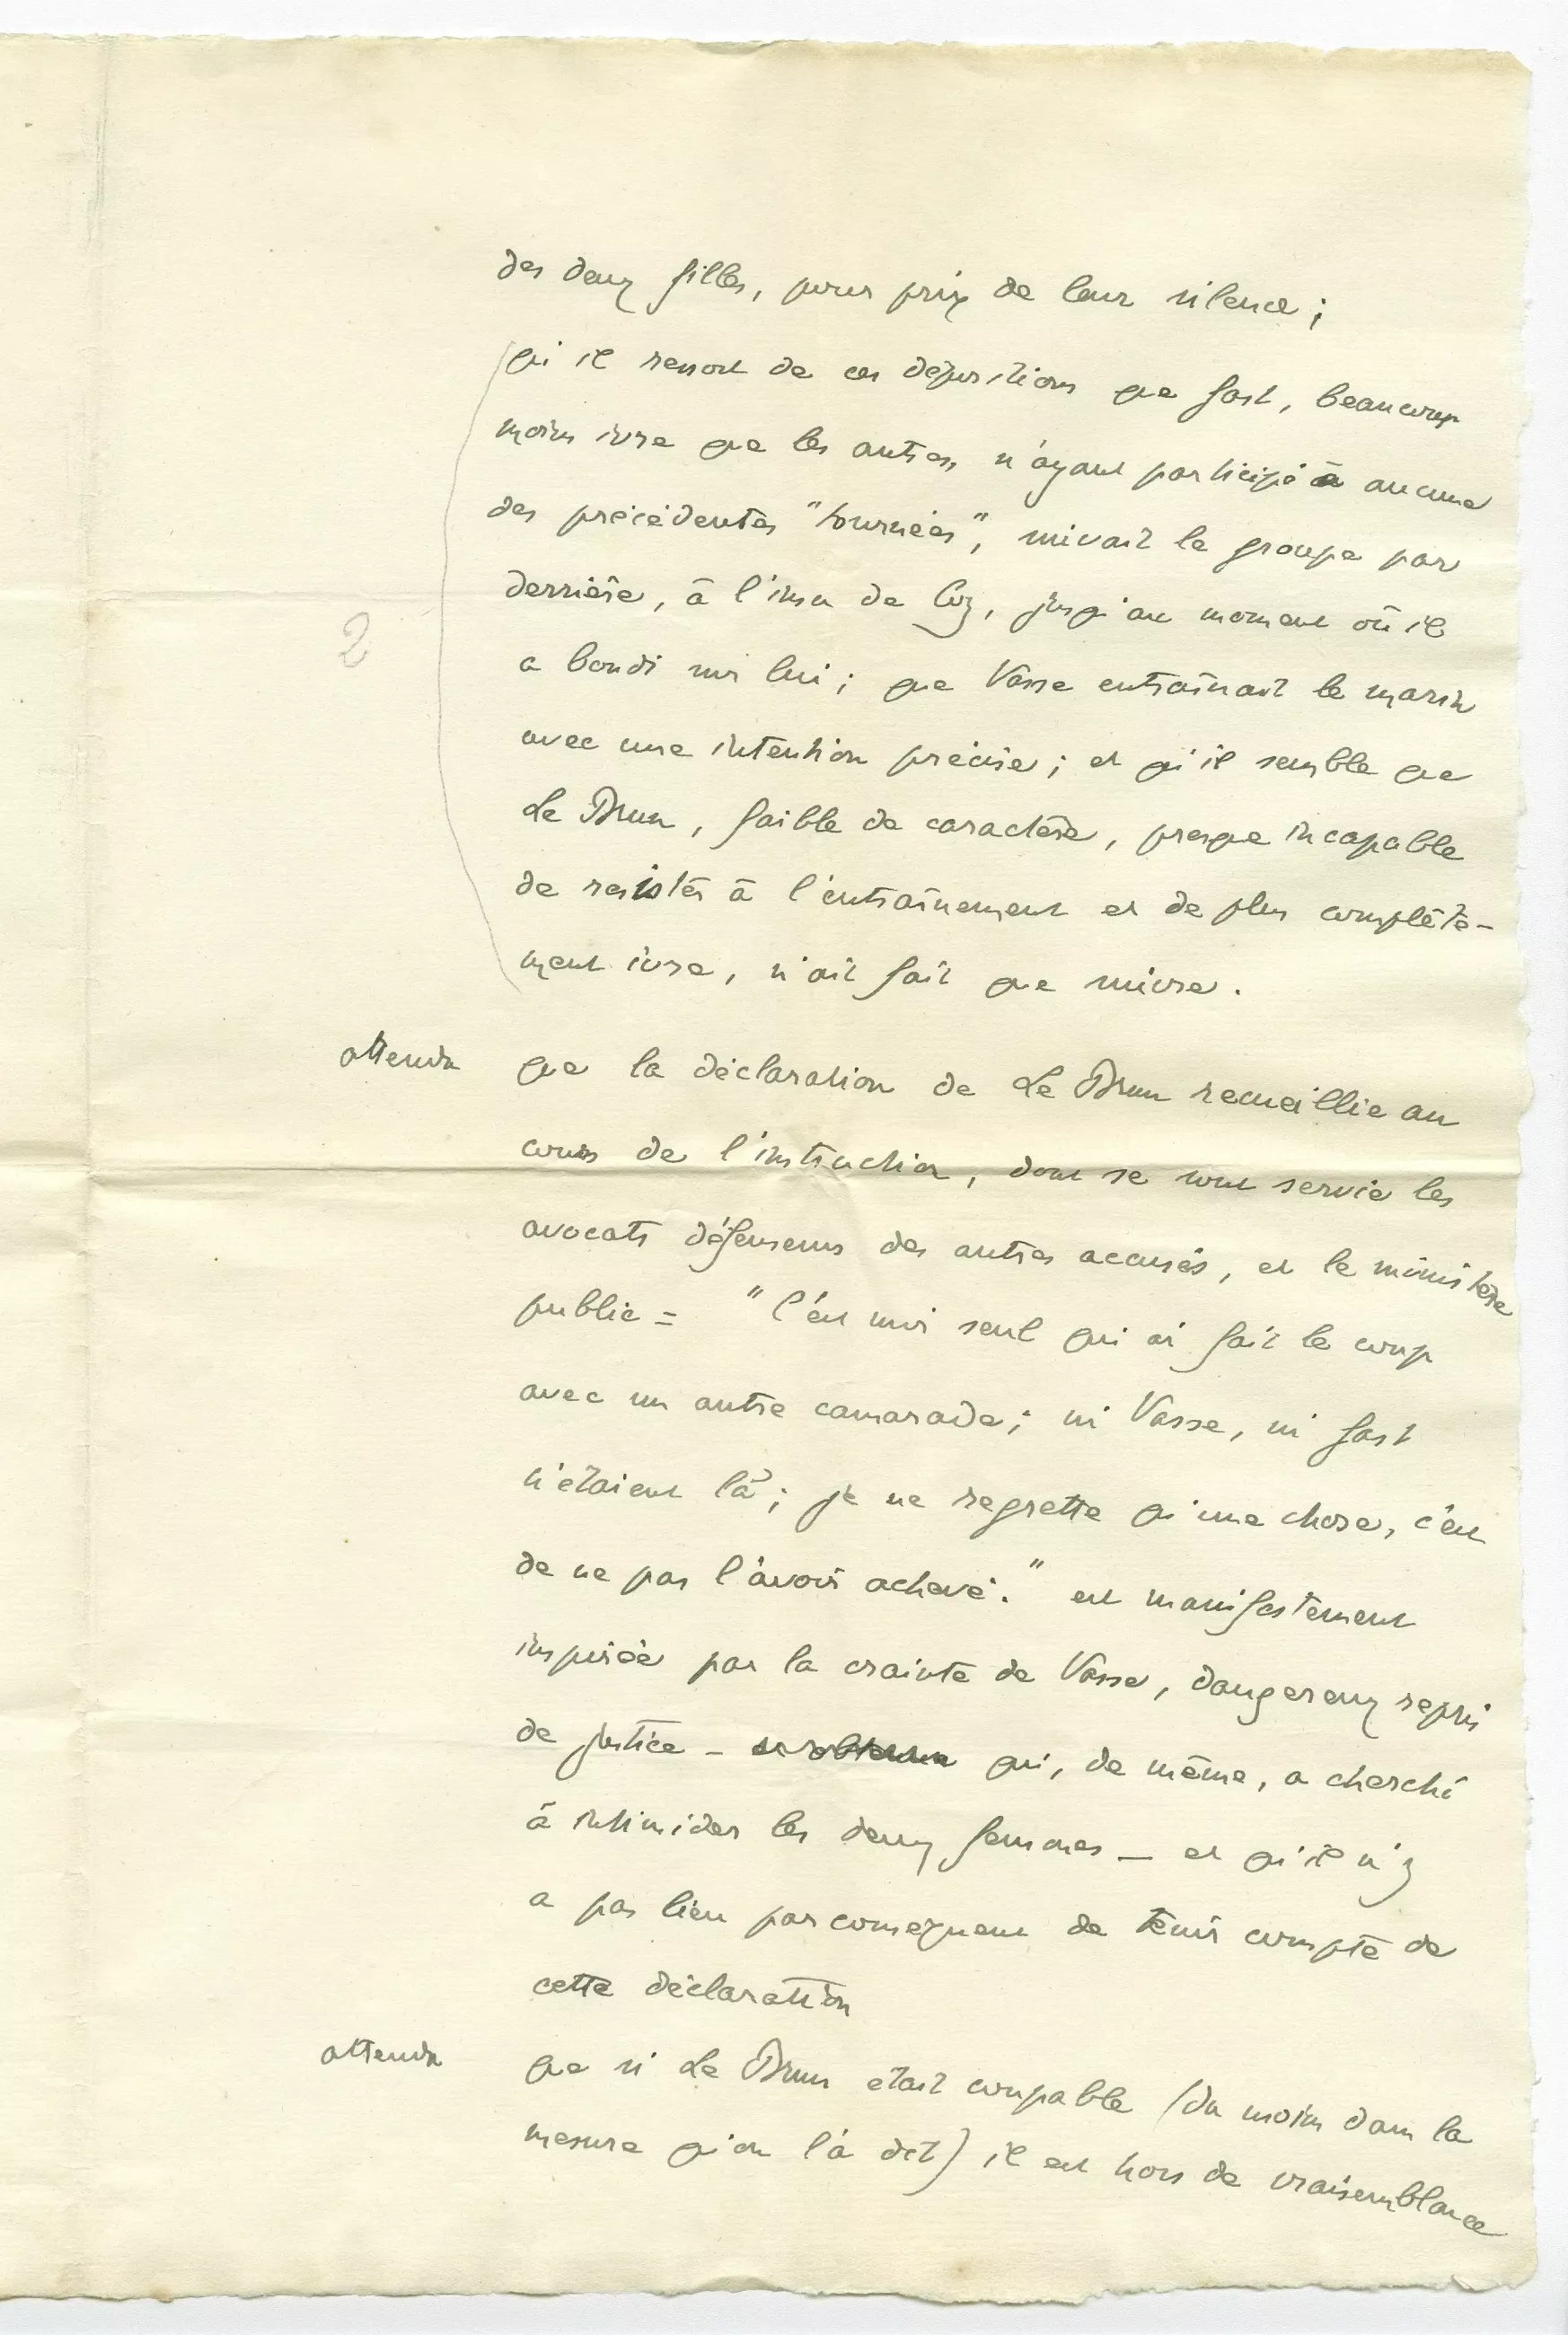 des deux filles, pour prix de leur silence ;
qu'il ressort de ces dépositions que Gast, beaucoup
moins ivre que les autres, n'ayant participé à aucune
des précédentes "tournées", suivait le groupe par
derrière, à l'insu de Cuz, jusqu'au moment où il
a bondi sur lui ; que Vasse entraînait le marin
avec une intention précise ; et qu'il semble que
Le Brun, faible de caractère, presque incapable
de resister à l'entraînement et de plus complète-
ment ivre, n'ait fait que suivre.
attendu que la déclaration de Le Brun recueillie au
cours de l'instruction, dont se sont servie les
avocats défenseurs des autres accusés, et le ministère
public = "C'est moi seul qui ai fait le coup
avec un autre camarade ; ni Vasse, ni Gast
n'étaient là ; je ne regrette qu'une chose, c'est
de ne pas l'avoir achevé." est manifestement
inspirée par la crainte de Vasse, dangereux repris
2
de justice – qui, de même, a cherché
à intimider les deux femmes – et qu'il n'y
a pas lieu par conséquent de tenir compte de
cette déclaration
attendu que si Le Brun était coupable (du moins dans la
mesure qu'on l'a dit) il est hors de vraisemblance